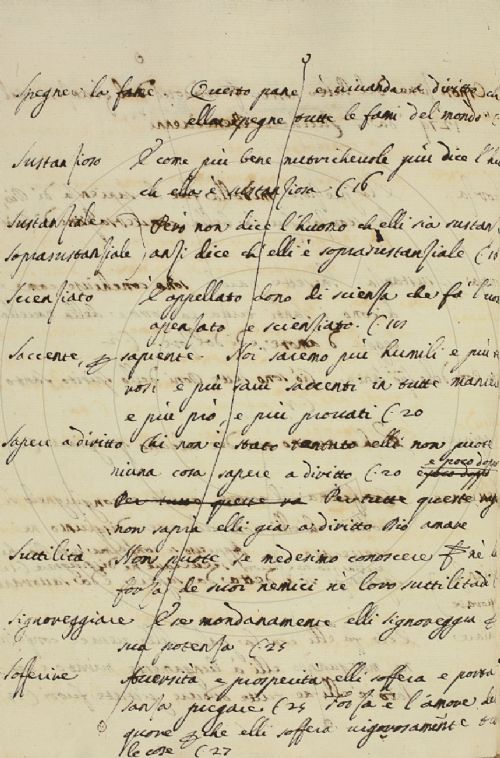 Spegne la fame. Questo pane è vivanda a diritto ch
ella spegne tutte le fami del mondo C
Sustanzioso E come più bene nutrichevole più dice l'hu
ch ella è sustanziosa C 16
Sustanziale Però non dice l'huomo ch elli sia sustan
soprasustanziale anzi dice ch elli è soprasustanziale C 16
Scienziato È appellato dono di scienza che fa l'uom
apensato e scienziato. C
Saccente, sapiente Noi saremo più humili e più
rosi e più savi saccenti in tutte manie
e più pro e più provati C 20
Sapere a diritto Chi non è stato tentato elli non puote
niuna cosa sapere a diritto C 20 e poco dopo
Per tutte queste ra Per tutte queste
non saprà elli già a diritto Dio amare
Suttilità Non puote se medesimo conoscere nè
forza de suoi nemici nè loro suttilità
Signoreggiare E re mondanamente elli signoreggia
sua potenza C 25
Sofferire Aversità e prosperità elli soffera e porta
sanza piegare C 25 Forza è l'amore de
quore che elli soffera vigorosamente
le cose C 27